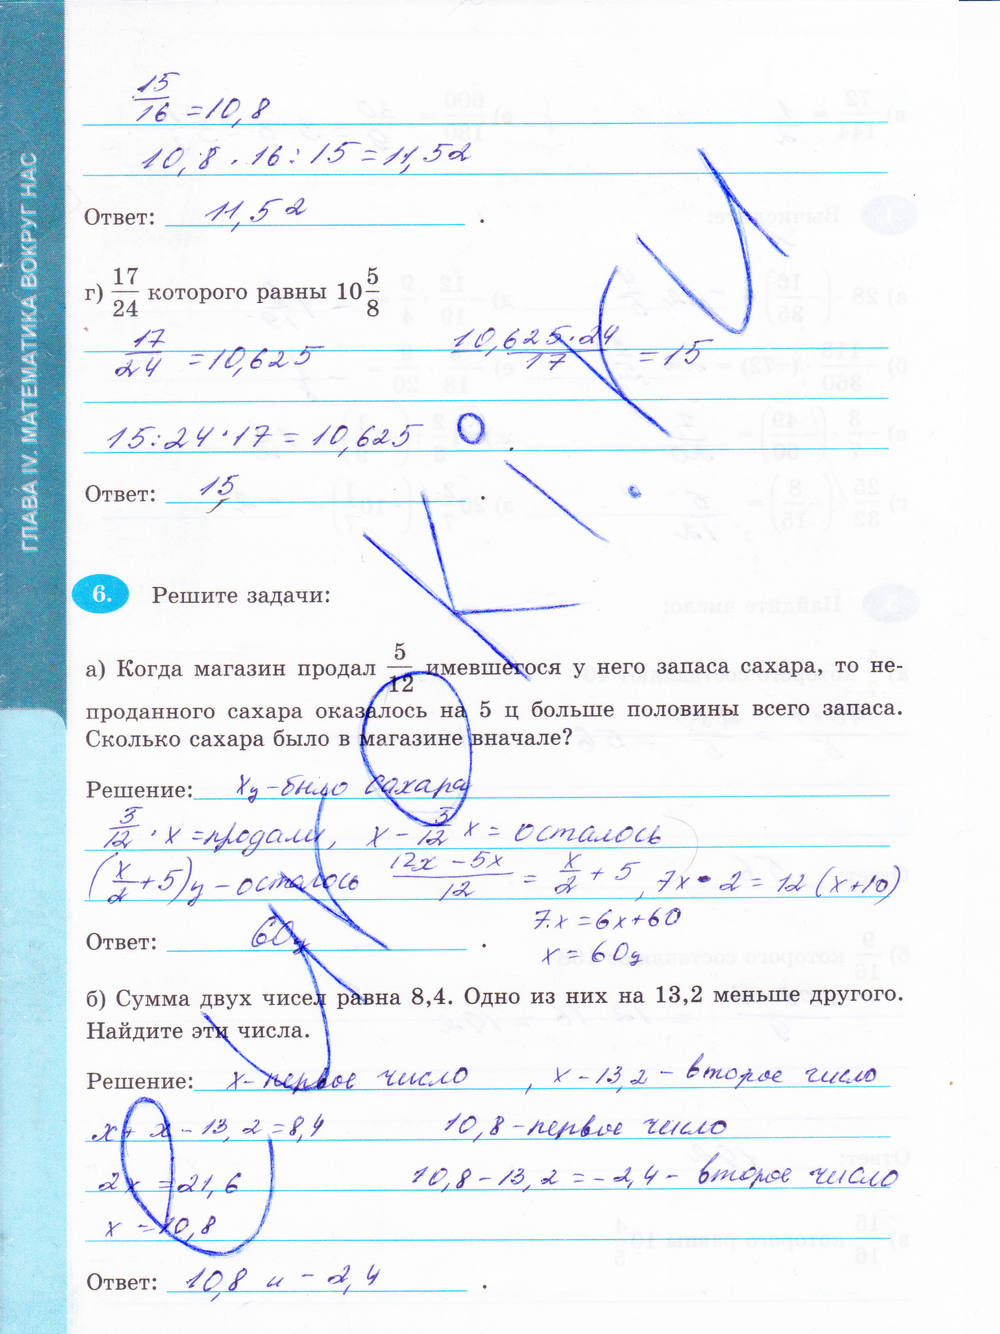 15/16 = 10,8
10,8 · 16 : 15 = 11,52
Ответ: 11,52 .
г) 17/24 которого равны 10 5/8
17/24 = 10,625 10,625·24/17 = 15
15:24·17 = 10,625 .
Ответ: 15 .
6. Решите задачи:
а) Когда магазин продал 5/12 имевшегося у него запаса сахара, то не-
проданного сахара оказалось на 5 ц больше половины всего запаса.
Сколько сахара было в магазине вначале?
Решение: xц - было сахара
5/12 · x = продали, x - 5/12 x = осталось
(x/2 + 5)ц - осталось 12x - 5x/12 = x/2 + 5, 7x · 2 = 12(x+10)
7x = 6x+60
Ответ: 60ц .
x = 60ц
б) Сумма двух чисел равна 8,4. Одно из них на 13,2 меньше другого.
Найдите эти числа.
Решение: x - первое число , x - 13,2 - второе число
x + x - 13,2 = 8,4 10,8 - первое число
2x = 21,6 10,8 - 13,2 = -2,4 - второе число
x = 10,8
Ответ: 10,8 и -2,4 .
ГЛАВА IV. МАТЕМАТИКА ВОКРУГ НАС